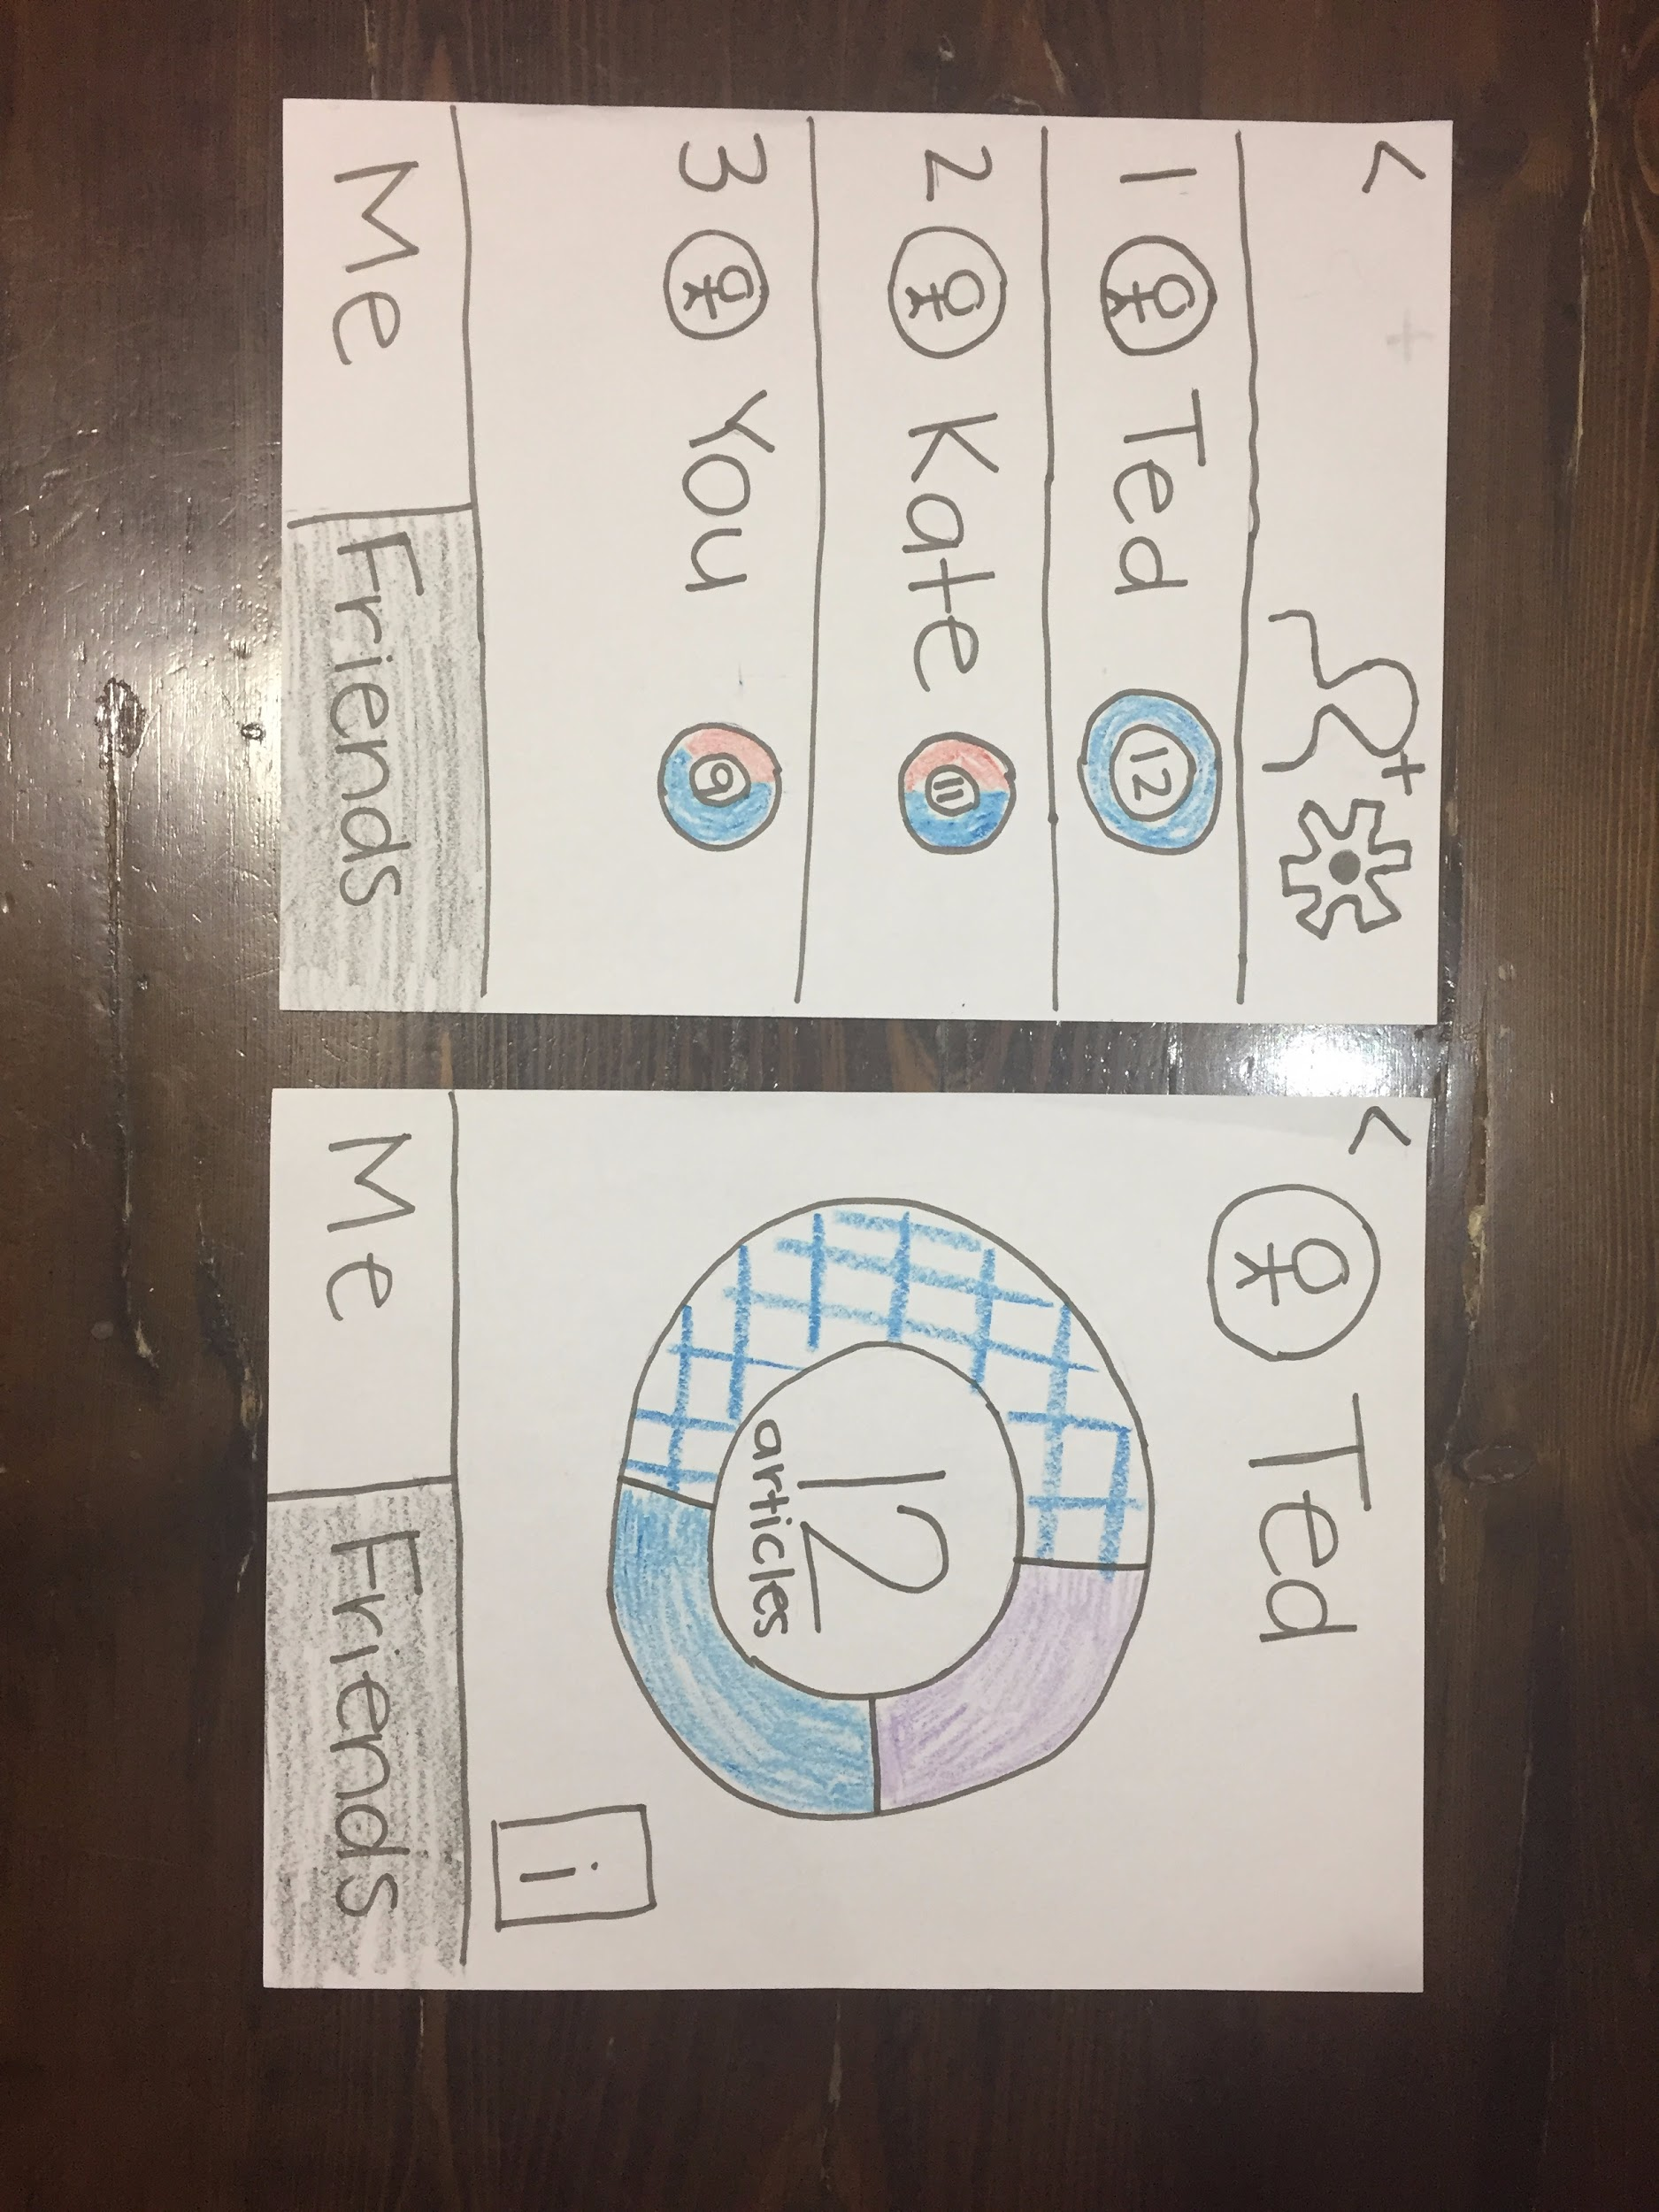 <
1 Ted 12
2 Kate 11
3 You 9
Me Friends
< Ted
12
articles
i
Me Friends